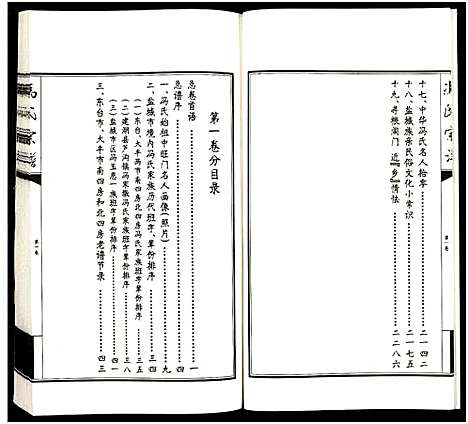 十七、中华冯氏名人拾零……二一四二
十八、盐城族亲民俗文化小常识……二一七五
十九、寻根阆门 近“乡”情怯……二二八六
第一卷
冯氏家谱
第一卷分目录
总卷首语……一
总谱序……四
一、冯氏始祖中旺门名人画像(照片)……九
二、盐城市境内冯氏家族历代班字、辈份排序……三四
(一)东台、大丰两市南四房和北四房冯氏家族班字辈份排序……三五
(二)建湖县芦沟镇冯家墩冯氏家族班字辈份排序……三八
(三)盐城市区冯玉惠一族班字辈份排序……四一
三、东台市、大丰市南四房和北四房老谱节录……四三
第一卷
冯氏家谱